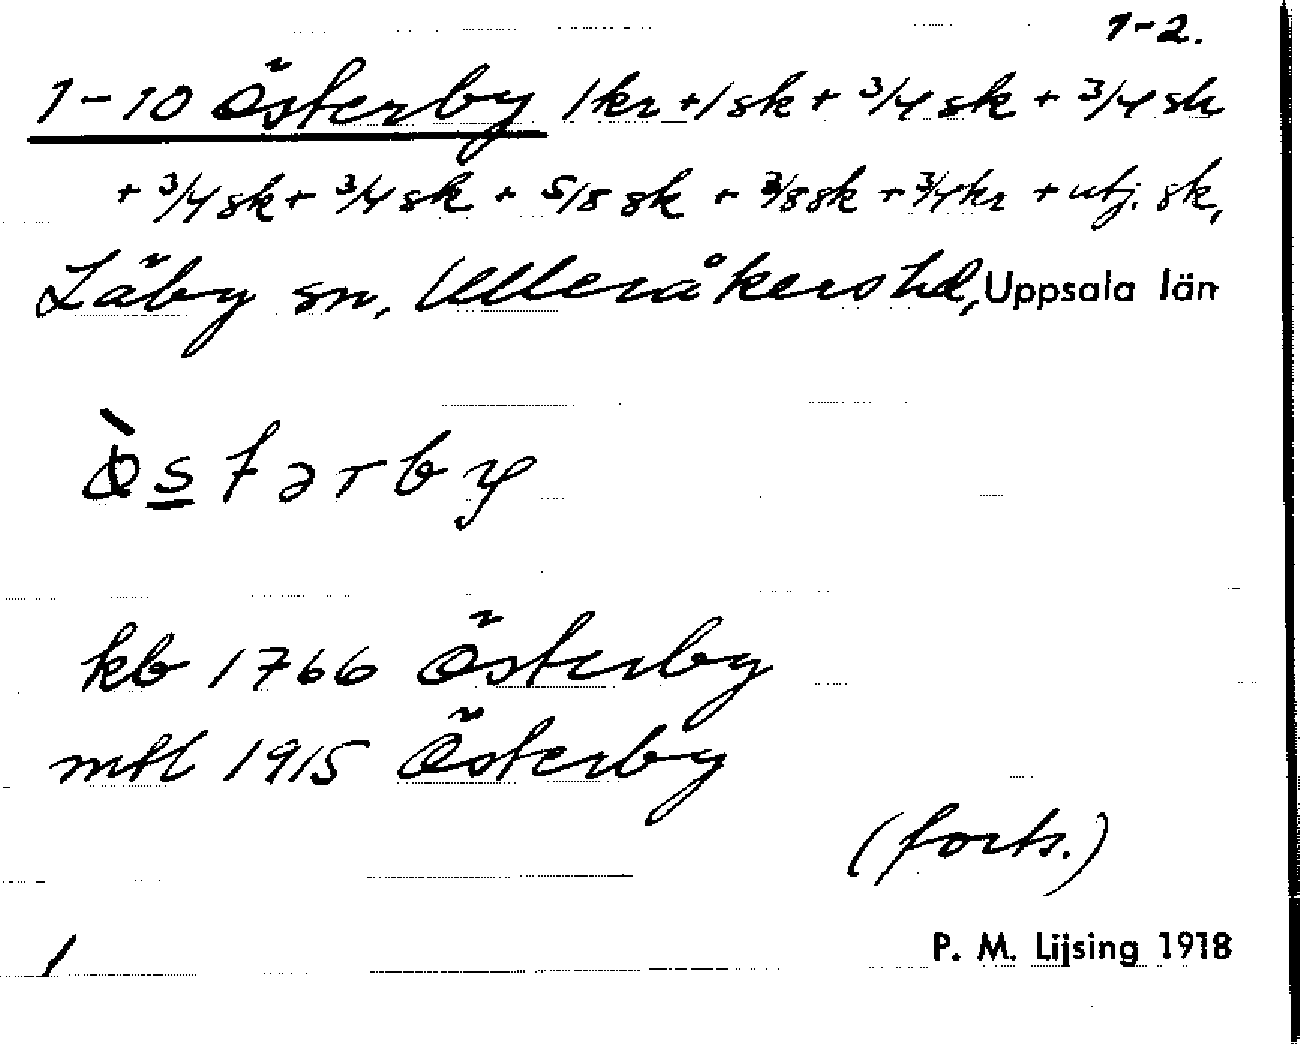 1-2.
1-10 Österby 1 kr + 1 sk + 3/4 sk + 3/4 sk
+ 3/4 sk + 3/4 sk + 5/8 sk + 3/8 sk + 3/4 kr + utj. sk,
Läby sn, Ulleråkers hd, Uppsala län
ø̀stərby
kb 1766 Österby
mtl 1915 Österby
(forts.)
1
P. M. Lijsing 1918